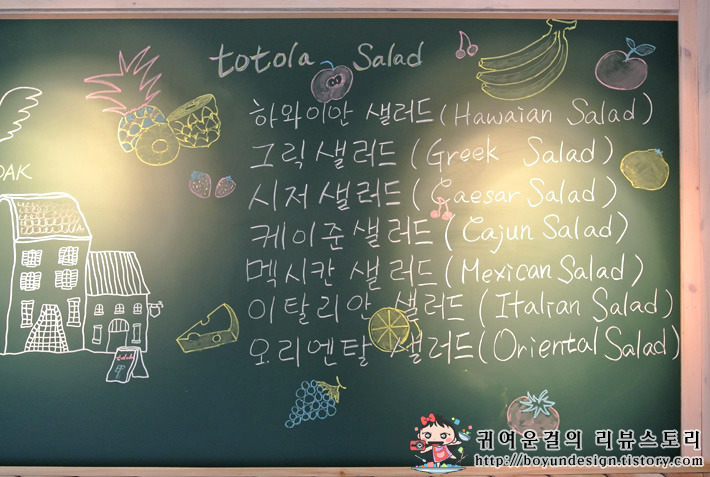 totola Salad
하와이안 샐러드 (Hawaian Salad)
그릭 샐러드 (Greek Salad)
시저 샐러드 (Caesar Salad)
케이준 샐러드 (Cajun Salad)
멕시칸 샐러드 (Mexican Salad)
이탈리안 샐러드 (Italian Salad)
오리엔탈 샐러드 (Oriental Salad)
OAK
totola
귀여운걸의 리뷰스토리
http://boyundesign.tistory.com/